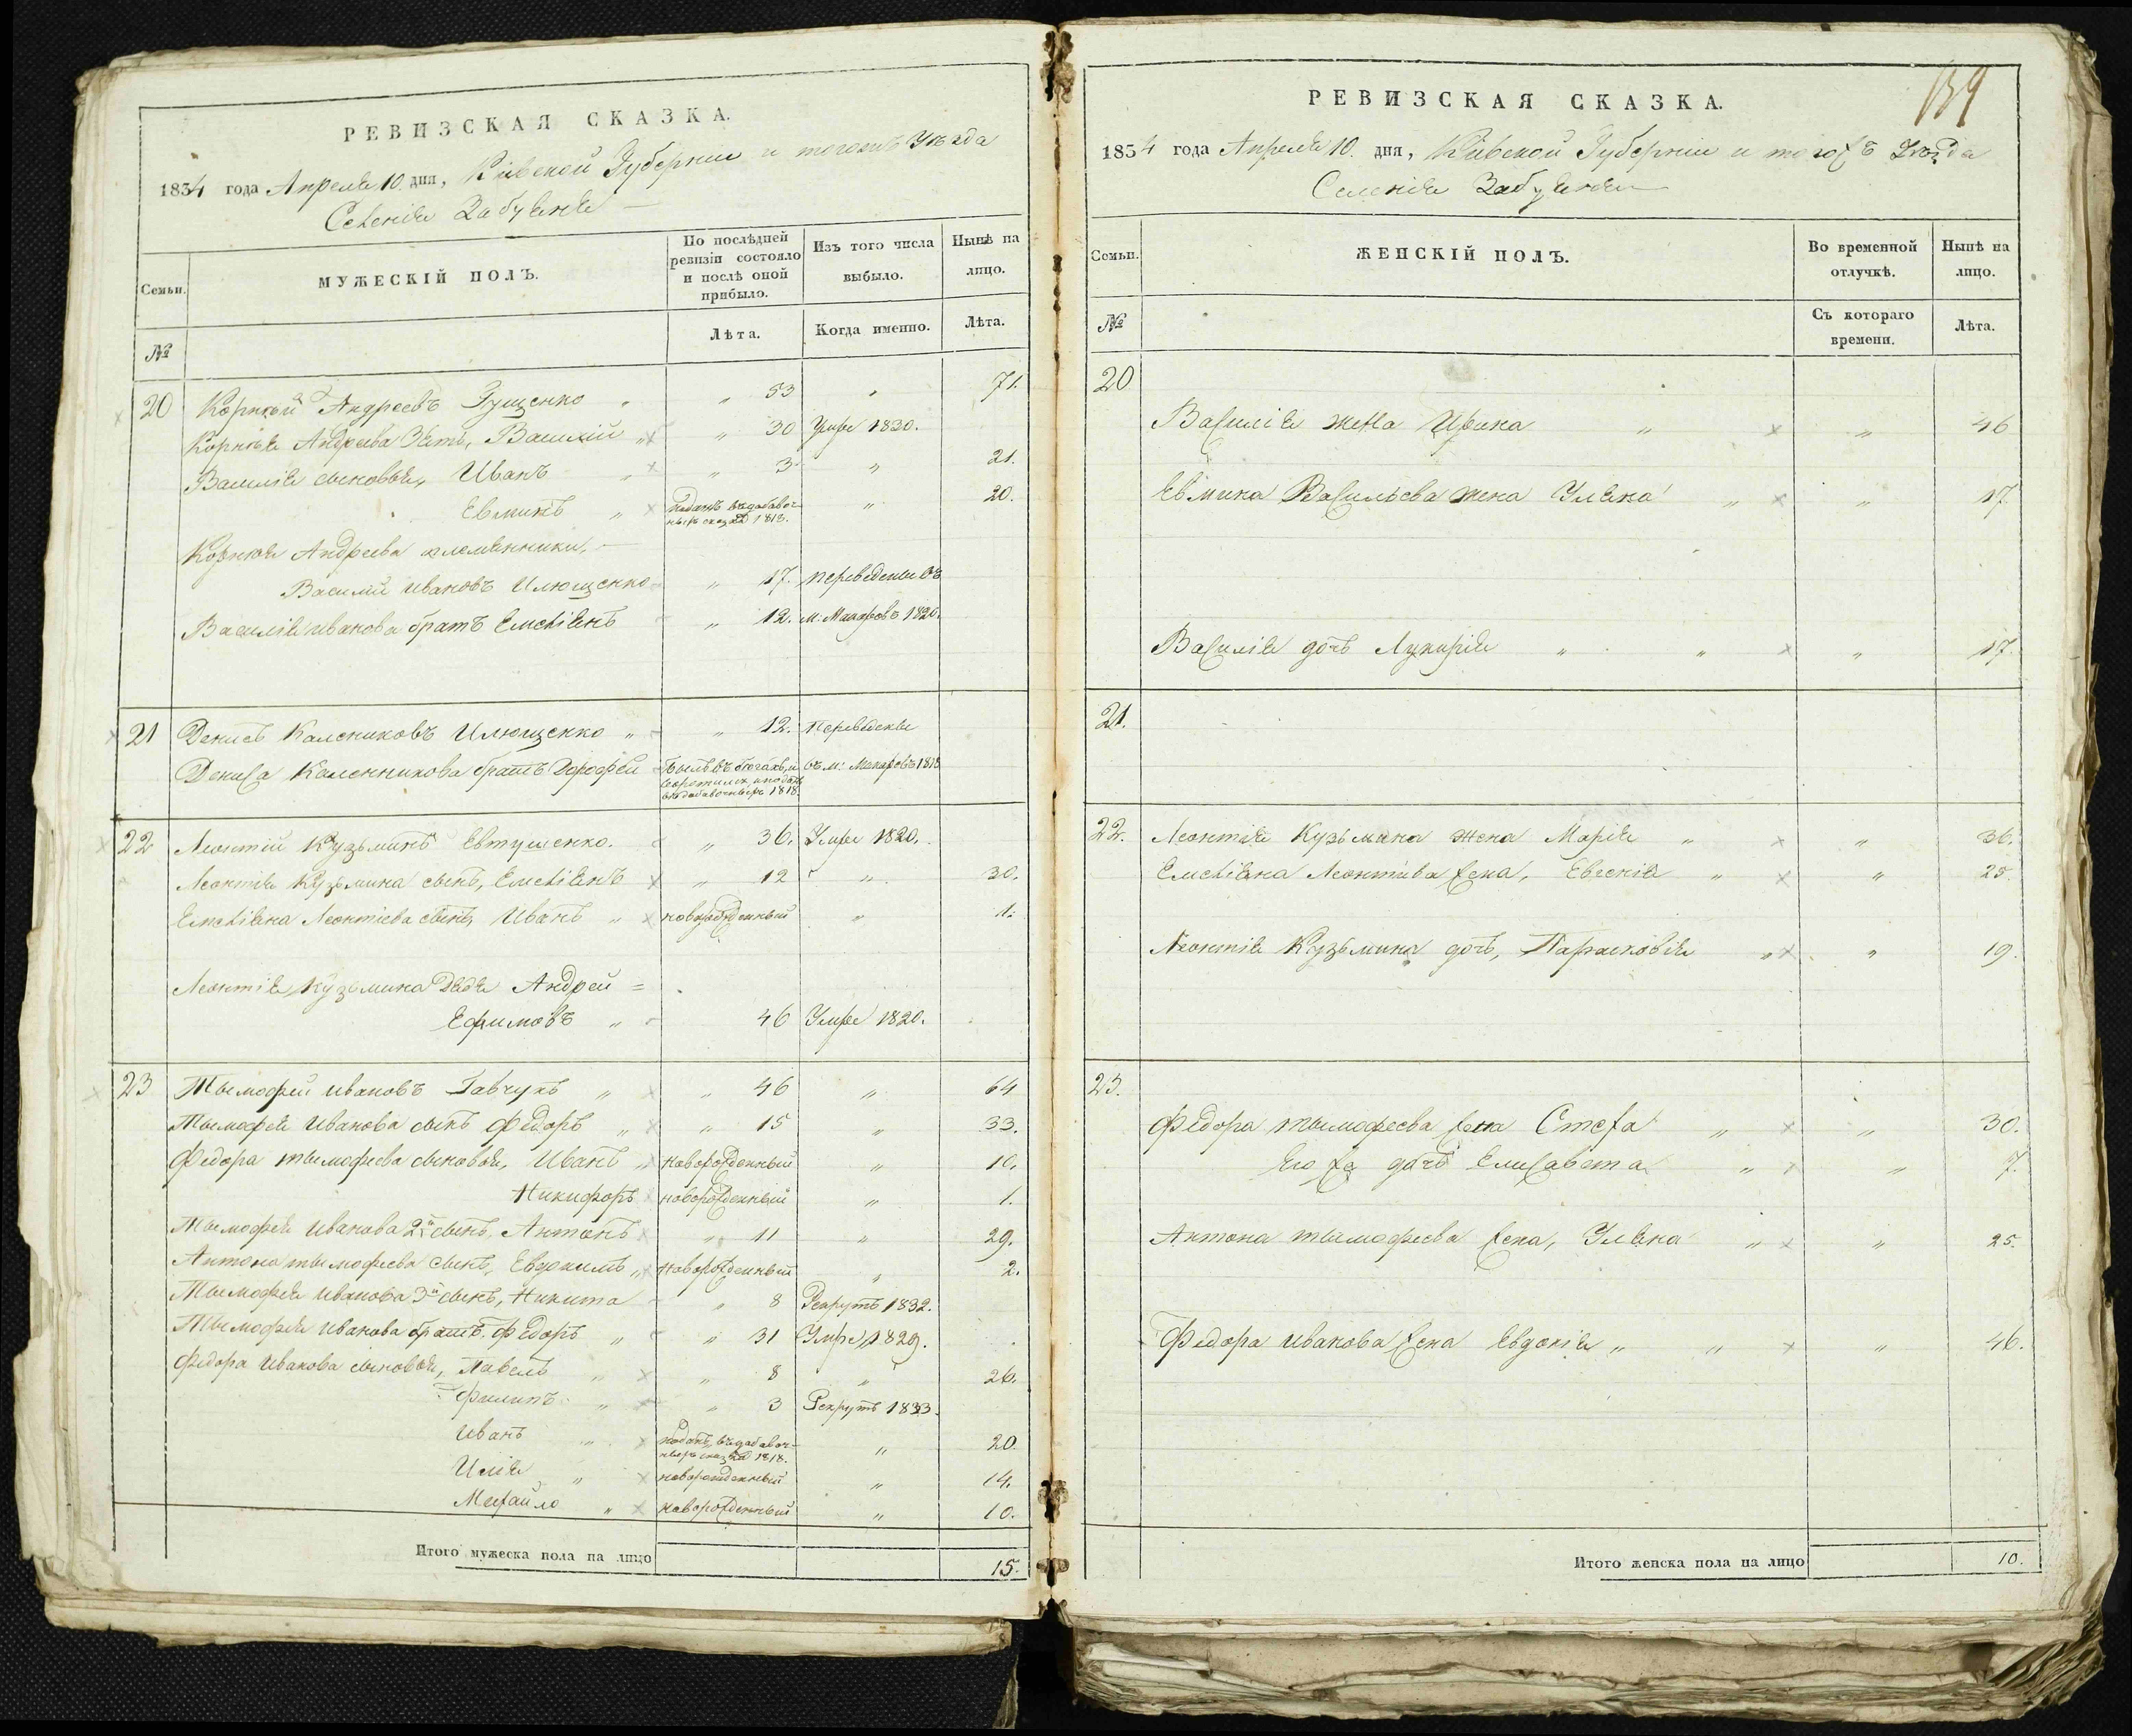 РЕВИЗСКАЯ СКАЗКА.
1834 года Апреля 10. дня, Кіевской Губерніи и тогожъ Уѣзда
Селенія Забуянья
Семьи.
МУЖЕСКІЙ ПОЛЪ.
По послѣдней ревизіи состояло и послѣ оной прибыло.
Изъ того числа выбыло.
Нынѣ на лицо.
№
Лѣта.
Когда именно.
Лѣта.
20 Корнѣй Андреевъ Гущенко „ „ 53 „ 71.
Корнѣя Андреева Зять, Василій „ „ 30 Умре 1820.
Василія сыновья, Иванъ „ „ 3 „ 21.
Евминъ „ поданъ въ добавочныхъ сказкахъ 1818. „ 20.
Корнѣя Андреева племянники,
Василій Ивановъ Илющенко „ 17. переведены въ
Василія Иванова братъ Емеліянъ „ 12. м: Макаровъ 1820.
21 Денисъ Калениковъ Илющенко „ „ 12. Переведены
Дениса Каленникова братъ Дорофей Былъ въ бѣгахъ, и возвратился и поданъ въ добавочныхъ 1818. въ м: Макаровъ 1818
22 Леонтій Кузьминъ Евтушенко. „ 36. Умре 1820.
Леонтія Кузьмина сынъ, Емеліянъ „ 12 „ 30.
Емеліяна Леонтіева сынъ, Иванъ „ новорожденный „ 1.
Леонтія Кузьмина Дядя Андрей =
Ефимовъ „ 46 Умре 1820.
23 Тымофей Ивановъ Гавчукъ „ „ 46 „ 64
Тымофея Иванова сынъ Федоръ „ „ 15 „ 33.
Федора Тымофеева сыновья, Иванъ „ новорожденный „ 10.
Никифоръ новорожденный „ 1.
Тымофея Иванова 2й сынъ, Антонъ „ 11 „ 29.
Антона Тымофеева сынъ, Евдокимъ „ новорожденный „ 2.
Тымофея Иванова 3й сынъ, Никита „ 8 Рекрутъ 1832.
Тымофея Иванова братъ Федоръ „ „ 31 Умре 1829.
Федора Иванова сыновья, Павелъ „ „ 8 „ 26.
Филипъ „ „ 3 Рекрутъ 1833.
Иванъ „ поданъ въ добавочныхъ сказкахъ 1818. „ 20
Илія „ новорожденный „ 14.
Михайло „ новорожденный „ 10.
Итого мужеска пола на лицо 15.
139
РЕВИЗСКАЯ СКАЗКА.
1834 года Апреля 10. дня, Кіевской Губерніи и тогожъ Уѣзда
Селенія Забуянья
Семьи.
ЖЕНСКІЙ ПОЛЪ.
Во временной отлучкѣ.
Нынѣ на лицо.
№
Съ котораго времени.
Лѣта.
20
Василія жена Ирина „ „ 46
Евмина Васильева жена Уляна „ „ 17.
Василія дочь Лукирія „ „ „ 17.
21.
22. Леонтія Кузьмина жена Марія „ „ 36.
Емеліяна Леонтіва жена, Евгенія „ „ 25.
Леонтія Кузьмина дочь, Парасковія „ „ 19.
23.
Федора Тымофеева жена Стефа „ „ 30.
Его же дочь Елисавета „ „ 7.
Антона Тымофеева жена, Уляна „ „ 25.
Федора Иванова жена Евдокія „ „ „ 46.
Итого женска пола на лицо 10.